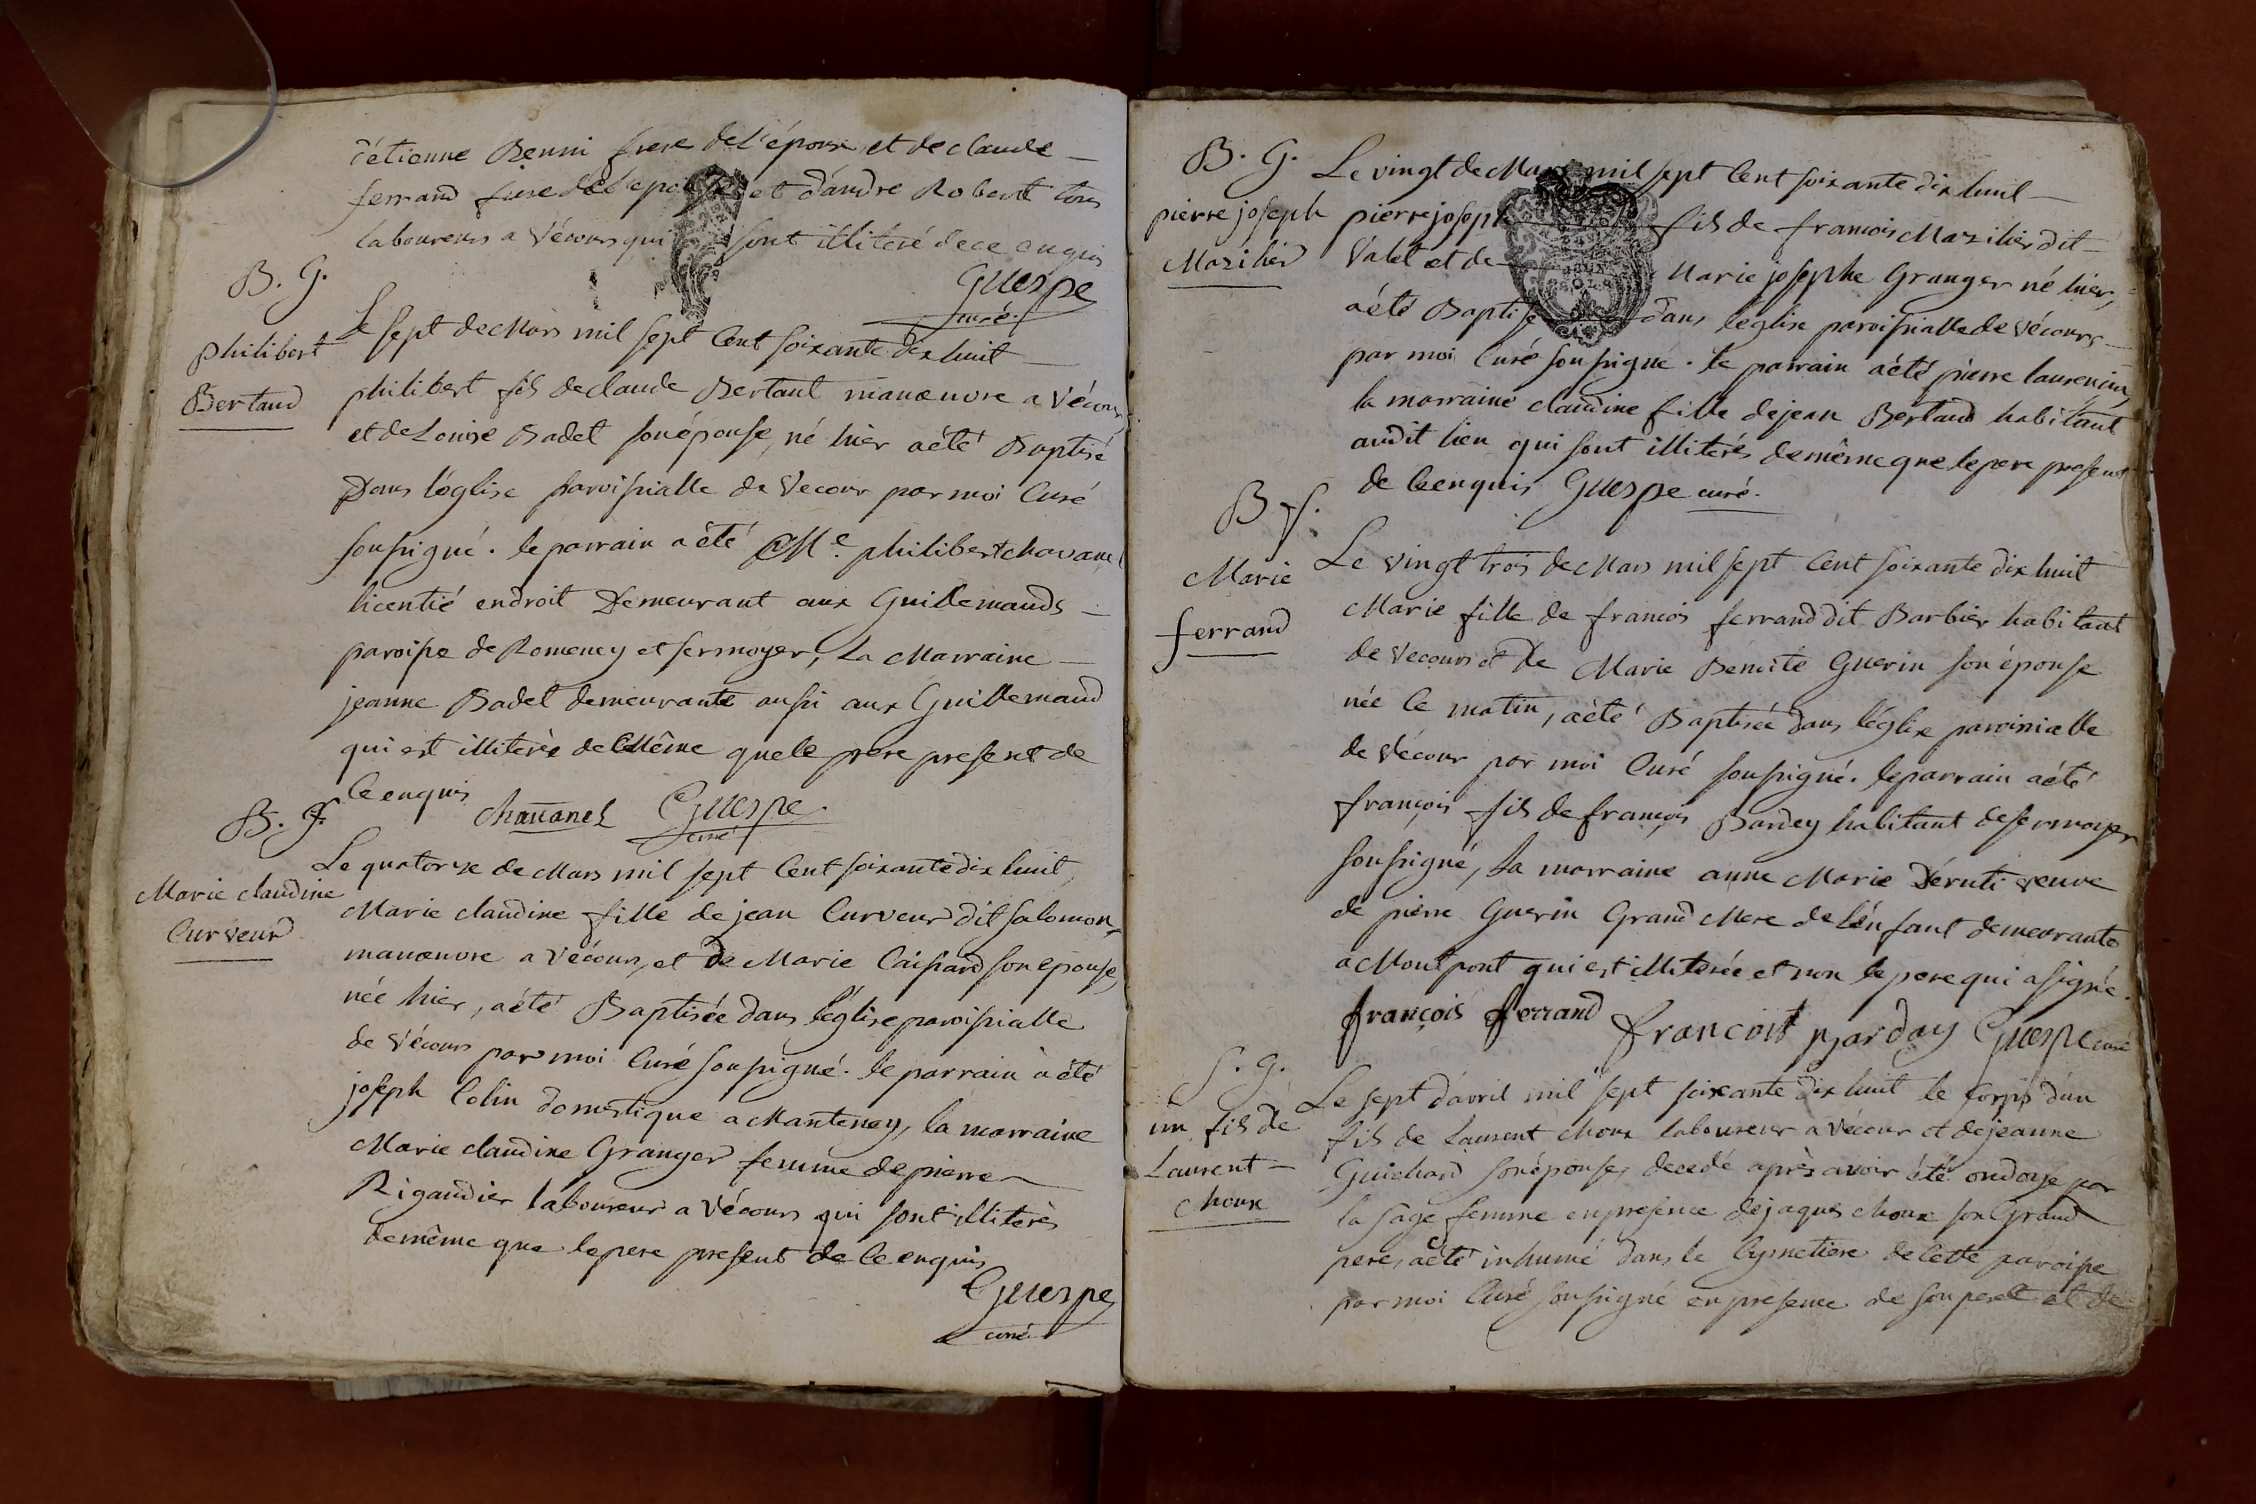 d'étienne Benni frere de L'épouse et de claude
ferrand frere de l'epouse et d'andre Robert tous
laboureurs a Vécours qui sont illiteré de ce enquis
Guespe
curé
B. G.
philibert
Bertaud
Le sept de Mars mil sept Cent soixante dix huit
philibert fils de claude Bertaut manœuvre a Vécours
et de Louise Badet son épouse, né hier a été Baptisé
Dans l'église paroissialle de Vecour par moi Curé
soussigné. le parrain a été Me philibert chavanel
licentié en droit Demeurant aux Guillemauds
paroisse de Romeney et sermoyer, La Marraine
jeanne Badet demeurante aussi aux Guillemaud
qui est illiterée de Même que le pere present de
Ce enquis chauanel Guespe
curé
B. f.
Marie claudine
Curveur
Le quatorze de Mars mil sept Cent soixante dix huit,
Marie claudine fille de jean Curveur dit salomon,
manœuvre a Vécours, et de Marie Caissard son epouse,
née hier, a été Baptisée dans l'église paroissialle
de Vécours par moi Curé soussigné. le parrain a été
joseph Colin domestique a Manteney, la marraine
Marie claudine Granger femme de pierre
Rigaudier laboureur a Vécours qui sont illiterés
de même que le pere present de Ce enquis
Guespe
curé
B. G.
pierre joseph
Mazilier
Le vingt de Mars mil sept Cent soixante dix huit
pierre joseph fils de francois Mazilier dit
Valet et de Marie josephe Granger né hier,
a été Baptisé dans l'église paroissialle de Vécours
par moi Curé soussigné. le parrain a été pierre laurencin,
la marraine claudine fille de jean Bertaud habitant
audit lieu qui sont illiterés de même que le pere present
de Ce enquis Guespe curé.
B f.
Marie
ferrand
Le vingt trois de Mars mil sept Cent soixante dix huit
Marie fille de francois ferrand dit Barbier habitant
de Vecours et De Marie Benoite Guerin son épouse
née Ce matin, a été Baptisée dans l'église paroissialle
de Vécour par moi Curé soussigné. le parrain a été
françois fils de françois Bardey habitant de sermoyer
soussigné, La marraine anne Marie Déruti veuve
de pierre Guerin Grand Mere de L'enfant demeurante
a Montpont qui est illiterée et non le pere qui a signé.
françois ferrand francois barday Guespe curé
S. G.
un fils de
Laurent
choux
Le sept d'avril mil sept soixante dix huit le Corps d'un
fils de Laurent choux laboureur a Vécour et de jeanne
Guichard son épouse, decedé après avoir été ondoye par
la sage femme en presence de jaques choux son Grand
pere, a été inhumé dans le Cymetiere de Cette paroisse
par moi Curé soussigné en presence de son pere et de